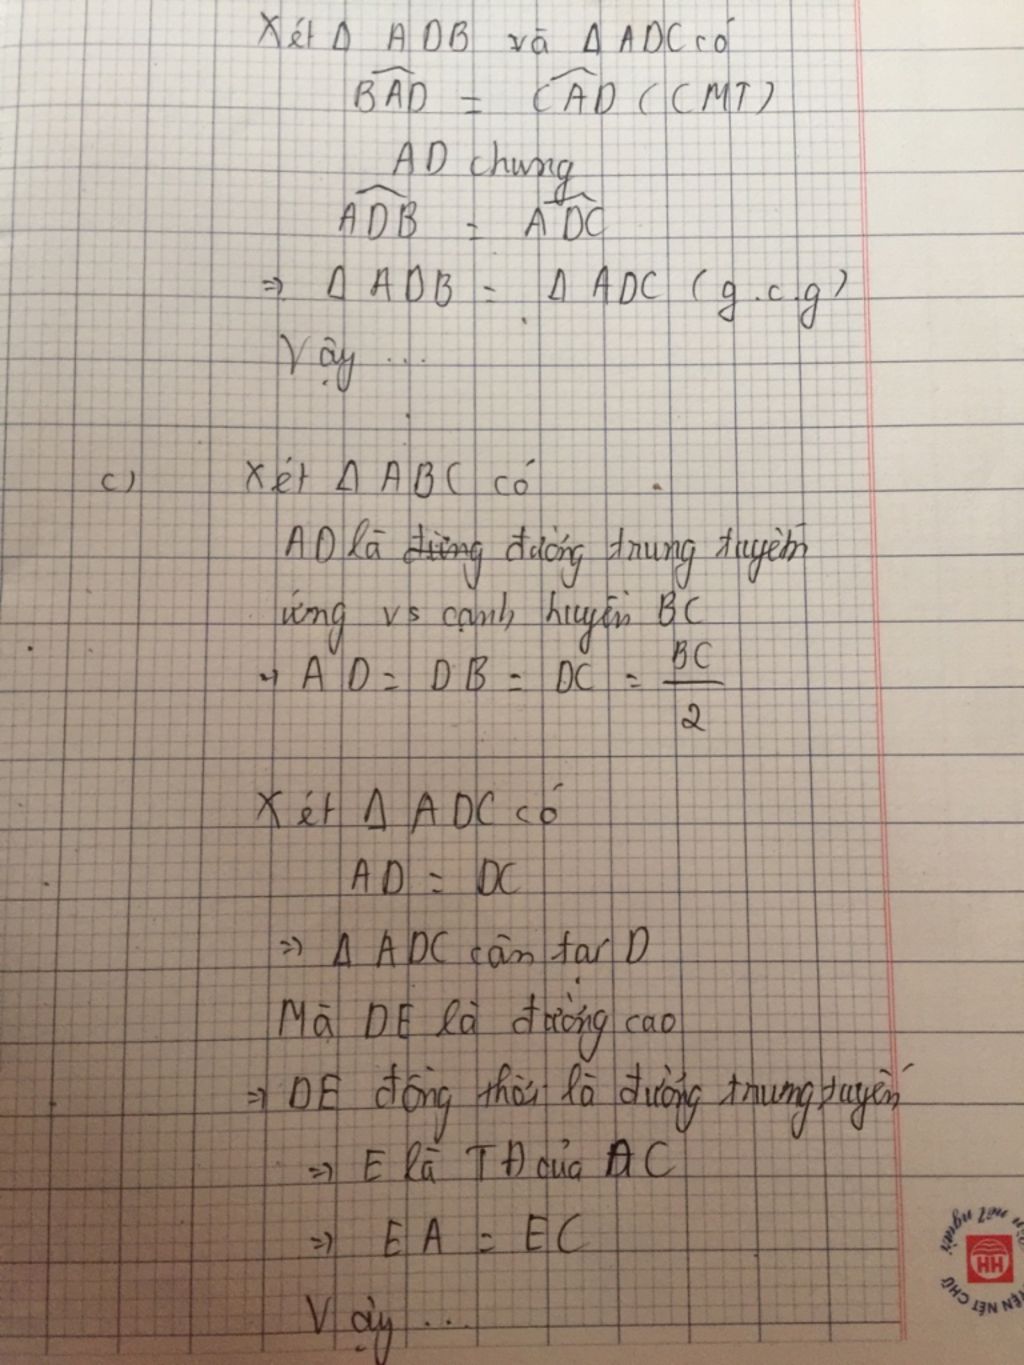 Xét Δ ADB và Δ ADC có
BAD = CAD (CMT)
AD chung
ADB = ADC
=> Δ ADB = Δ ADC (g.c.g)
Vậy ...
c) Xét Δ ABC có
AD là đường trung tuyến
ứng vs cạnh huyền BC
=> AD = DB = DC = BC/2
Xét Δ ADC có
AD = DC
=> Δ ADC cân tại D
Mà DE là đường cao
=> DE đồng thời là đường trung tuyến
=> E là TĐ của AC
=> EA = EC
Vậy ...
nết người
HH
NÉT CHỮ